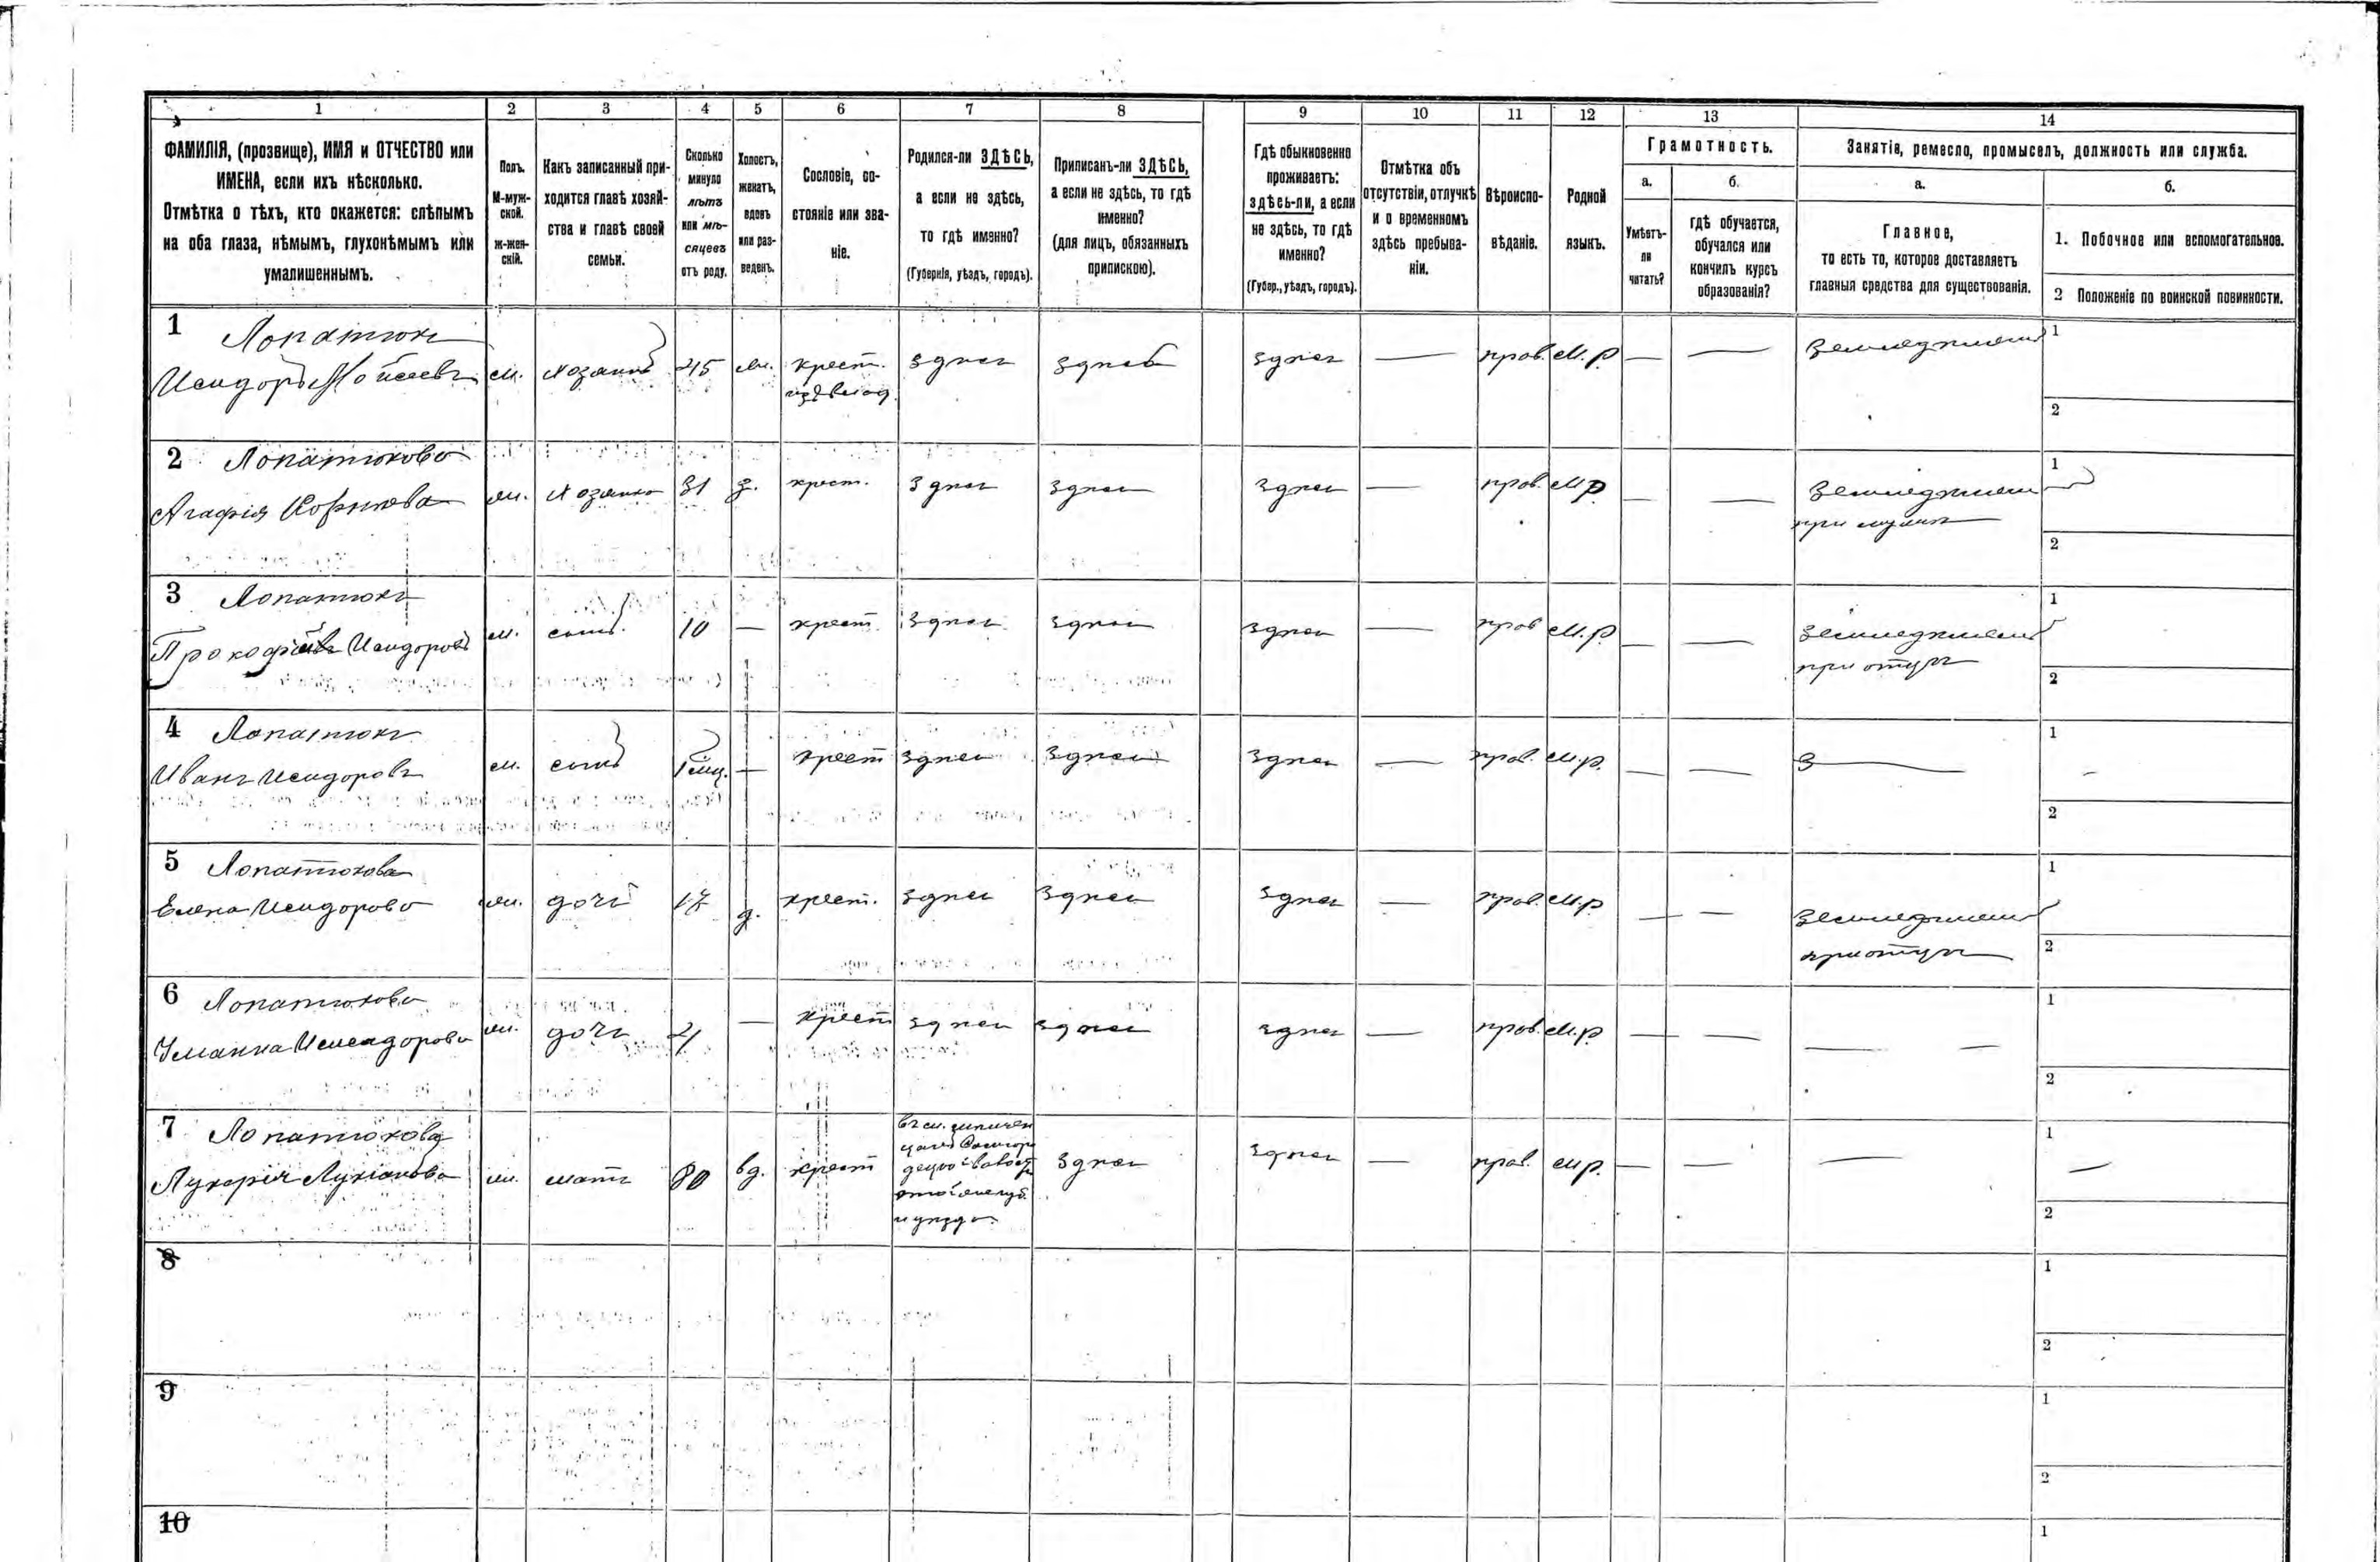 1 2 3 4 5 6 7 8 9 10 11 12 13 14
ФАМИЛІЯ, (прозвище), ИМЯ и ОТЧЕСТВО или
ИМЕНА, если ихъ нѣсколько.
Отмѣтка о тѣхъ, кто окажется: слѣпымъ
на оба глаза, нѣмымъ, глухонѣмымъ или
умалишеннымъ.
Полъ.
М-муж-
ской.
ж-жен-
скій.
Какъ записанный при-
ходится главѣ хозяй-
ства и главѣ своей
семьи.
Сколько
минуло
лѣтъ
или мѣ-
сяцевъ
отъ роду.
Холостъ,
женатъ,
вдовъ
или раз-
веденъ.
Сословіе, со-
стояніе или зва-
ніе.
Родился-ли ЗДѢСЬ,
а если не здѣсь,
то гдѣ именно?
(Губернія, уѣздъ, городъ).
Приписанъ-ли ЗДѢСЬ,
а если не здѣсь, то гдѣ
именно?
(для лицъ, обязанныхъ
припискою).
Гдѣ обыкновенно
проживаетъ:
здѣсь-ли, а если
не здѣсь, то гдѣ
именно?
(Губер., уѣздъ, городъ).
Отмѣтка объ
отсутствіи, отлучкѣ
и о временномъ
здѣсь пребыва-
ніи.
Вѣроиспо-
вѣданіе.
Родной
языкъ.
Грамотность.
а.
Умѣетъ-
ли
читать?
б.
гдѣ обучается,
обучался или
кончилъ курсъ
образованія?
Занятіе, ремесло, промыселъ, должность или служба.
а.
Главное,
то есть то, которое доставляетъ
главныя средства для существованія.
б.
1. Побочное или вспомогательное.
2 Положеніе по воинской повинности.
1 Лопатюкъ
Исидоръ Мойсеевъ м. хозяинъ 45 жн. крест. здѣсь здѣсь здѣсь — прав. м.р. — — земледѣлецъ
1
2
2 Лопатюкова
Агафія жн. хозяйка 31 з. крест. здѣсь здѣсь здѣсь — прав. м.р. — — земледѣлец
при мужѣ
1
2
3 Лопатюкъ
Исидоровъ м. сынъ. 10 — крест. здѣсь здѣсь здѣсь — прав м.р. — — земледѣлецъ
при отцѣ
1
2
4 Лопатюкъ
Иванъ Исидоровъ м. сынъ — крест здѣсь здѣсь здѣсь — прав. м.р. — —
1
2
5 Лопатюкова
Елена Исидорова жн. дочь 17 д. крест. здѣсь здѣсь здѣсь — прав. м.р — — земледѣлецъ
при отцѣ
1
2
6 Лопатюкова
Исидорова жн. дочь 4 — крест здѣсь здѣсь здѣсь — прав. м.р — — — —
1
2
7 Лопатюкова
Лукерія Лукіанова жн. мать 80 вд. крест здѣсь здѣсь — прав. м.р. — — —
и уѣзда.
1
2
8
1
2
9
1
2
10
1